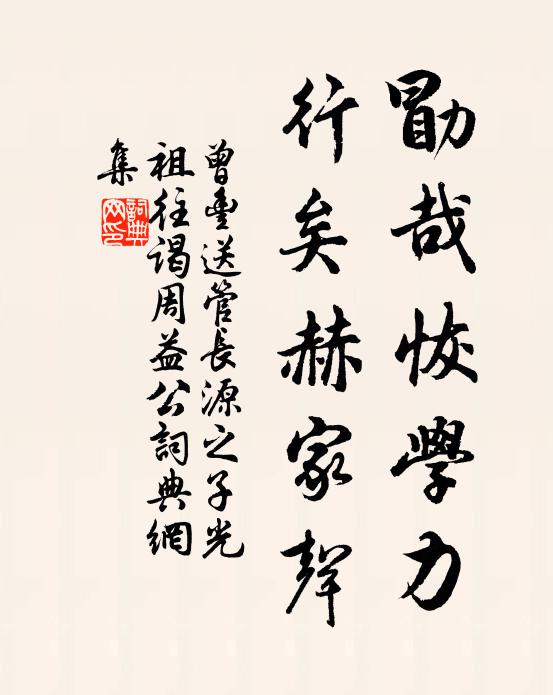 勖哉恢學力
行矣赫家聲
曾豐送管長源之子光
祖往謁周益公詞典網
集
詞典
网印